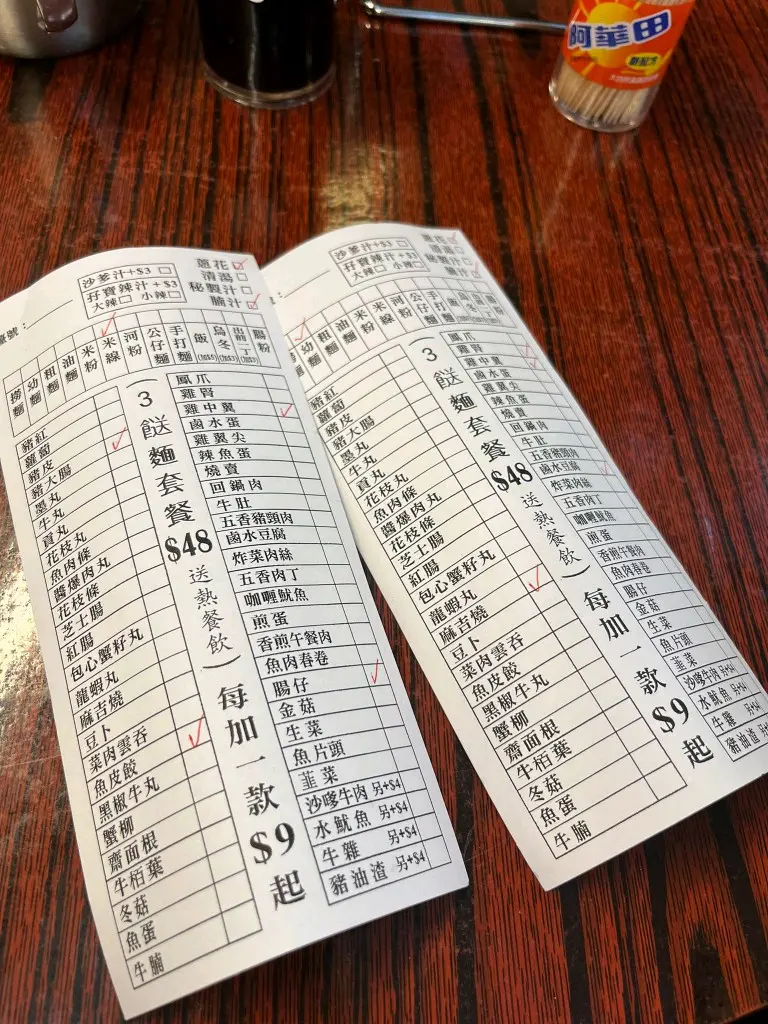 阿華田
新配方
臺號:
沙爹汁+$3
孖寶辣汁+$3
大辣 小辣
蔥花
清湯
秘製汁
腩汁
撈麵
幼麵
粗麵
油麵
米粉
米線
河粉
公仔麵
手打麵
飯(加$5)
烏冬(加$3)
出前一丁(加$3)
腸粉
豬紅
蘿蔔
豬皮
豬大腸
墨丸
牛丸
貢丸
花枝丸
魚肉條
醬爆肉丸
花枝條
芝士腸
紅腸
包心蟹籽丸
龍蝦丸
麻吉燒
豆卜
菜肉雲吞
魚皮餃
黑椒牛丸
蟹柳
齋面根
牛栢葉
冬菇
魚蛋
牛腩
(3餸麵套餐$48送熱餐飲)每加一款$9起
鳳爪
雞腎
雞中翼
鹵水蛋
雞翼尖
辣魚蛋
燒賣
回鍋肉
牛肚
五香豬頸肉
鹵水豆腐
炸菜肉絲
五香肉丁
咖喱魷魚
煎蛋
香煎午餐肉
魚肉春卷
腸仔
金菇
生菜
魚片頭
韮菜
沙嗲牛肉 另+$4
水魷魚 另+$4
牛雜 另+$4
豬油渣 另+$4
號:
沙爹汁+$3
孖寶辣汁+$3
大辣 小辣
蔥花
清湯
秘製汁
腩汁
幼麵
粗麵
油麵
米粉
米線
河粉
公仔麵
手打麵
飯
烏冬
腸粉
豬紅
蘿蔔
豬皮
豬大腸
墨丸
牛丸
貢丸
花枝丸
魚肉條
醬爆肉丸
花枝條
芝士腸
紅腸
包心蟹籽丸
龍蝦丸
麻吉燒
豆卜
菜肉雲吞
魚皮餃
黑椒牛丸
蟹柳
齋面根
牛栢葉
冬菇
魚蛋
牛腩
(3餸麵套餐$48送熱餐飲)每加一款$9起
鳳爪
雞腎
雞中翼
鹵水蛋
雞翼尖
辣魚蛋
燒賣
回鍋肉
牛肚
五香豬頸肉
鹵水豆腐
炸菜肉絲
五香肉丁
咖喱魷魚
煎蛋
香煎午餐肉
魚肉春卷
腸仔
金菇
生菜
魚片頭
韮菜
沙嗲牛肉 另+$4
水魷魚 另+$4
牛雜 另+$4
豬油渣 另+$4